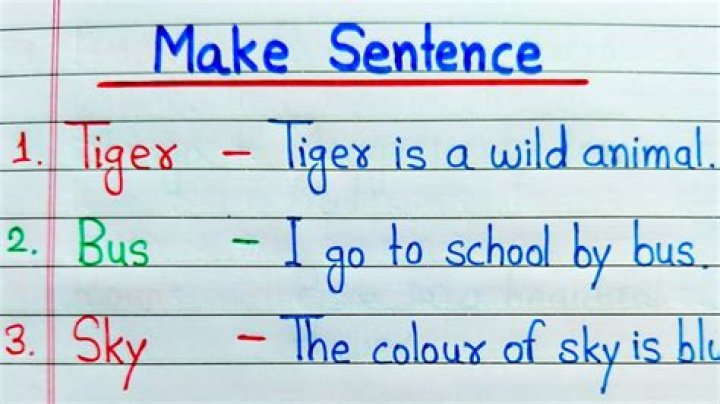 Make Sentence
1. Tiger - Tiger is a wild animal.
2. Bus - I go to school by bus.
3. Sky - The colour of sky is blu